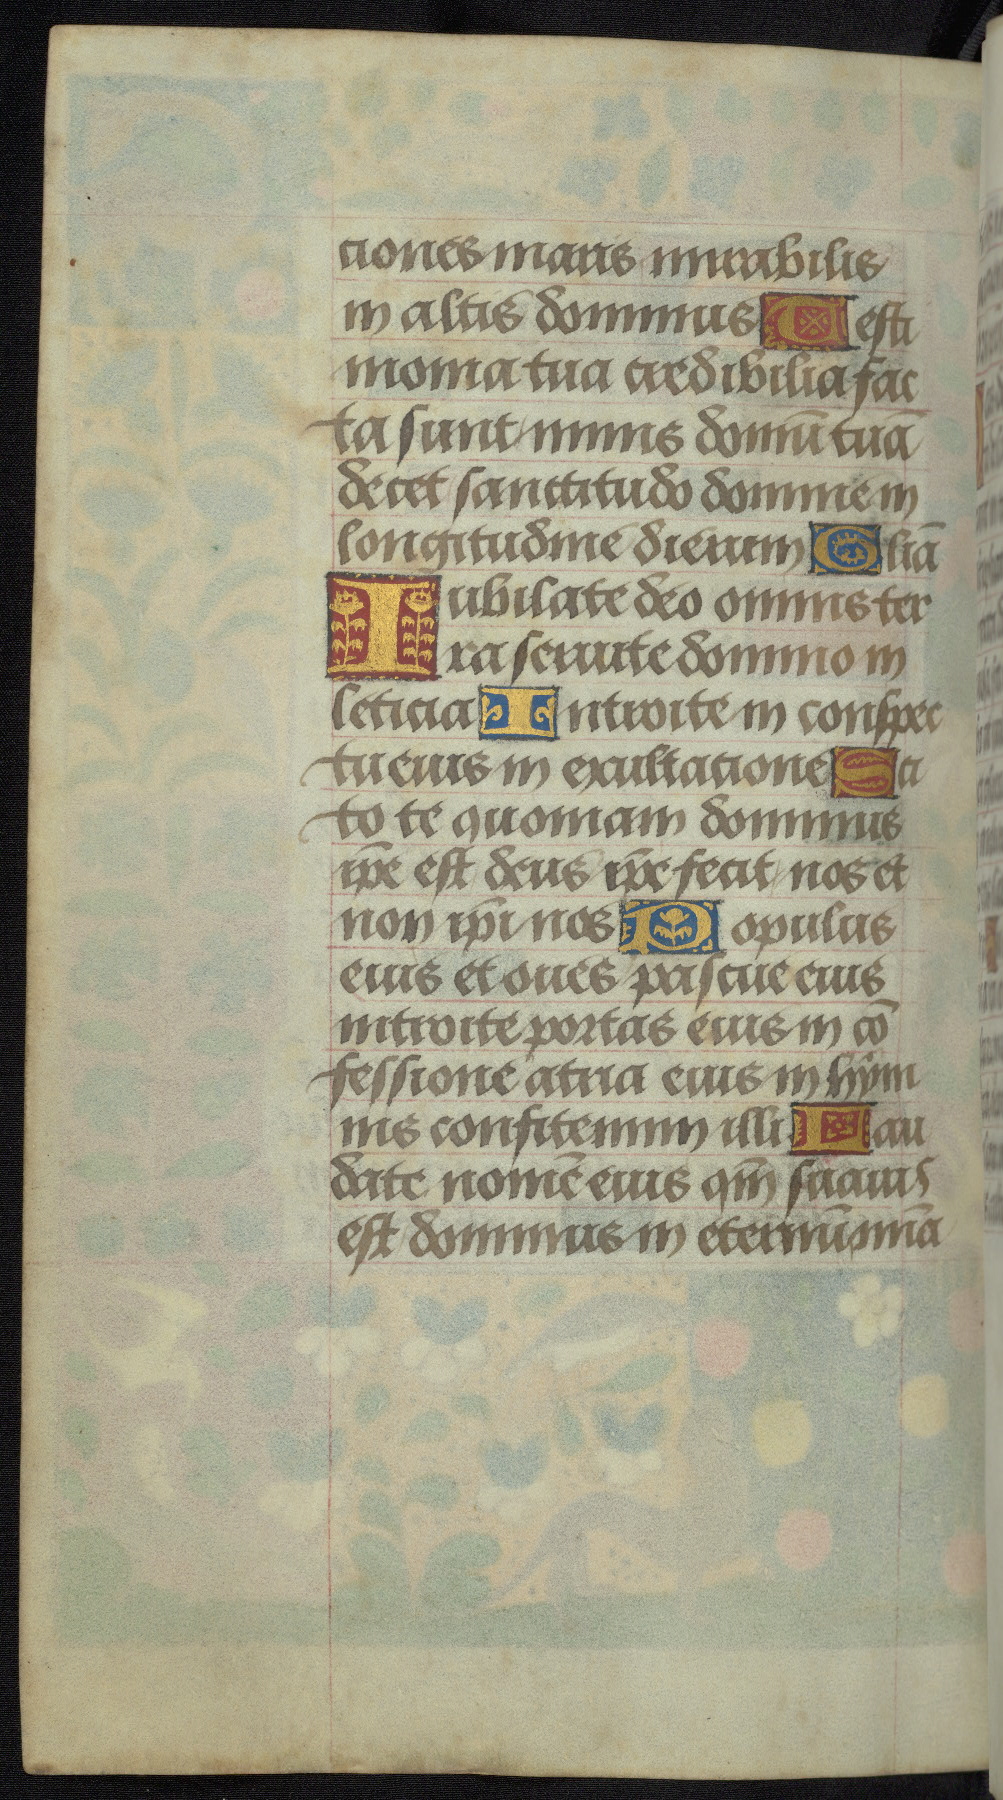 ciones maris mirabilis
in altis dominus Testi
monia tua credibilia fac
ta sunt nimis domū tuā
decet sanctitudo domine in
longitudine dierum Gliā
Iubilate deo omnis ter
ra seruite domino in
leticia Introite in conspec
tu eius in exultatione Sci
to te quoniam dominus
ip̄e est deus ip̄e fecit nos et
non ip̄i nos Populus
eius et oues pascue eius
introite portas eius in cō
fessione atria eius in hym
nis confitemini illi Lau
date nomē eius qm̄ suauis
est dominus in eternū mīa